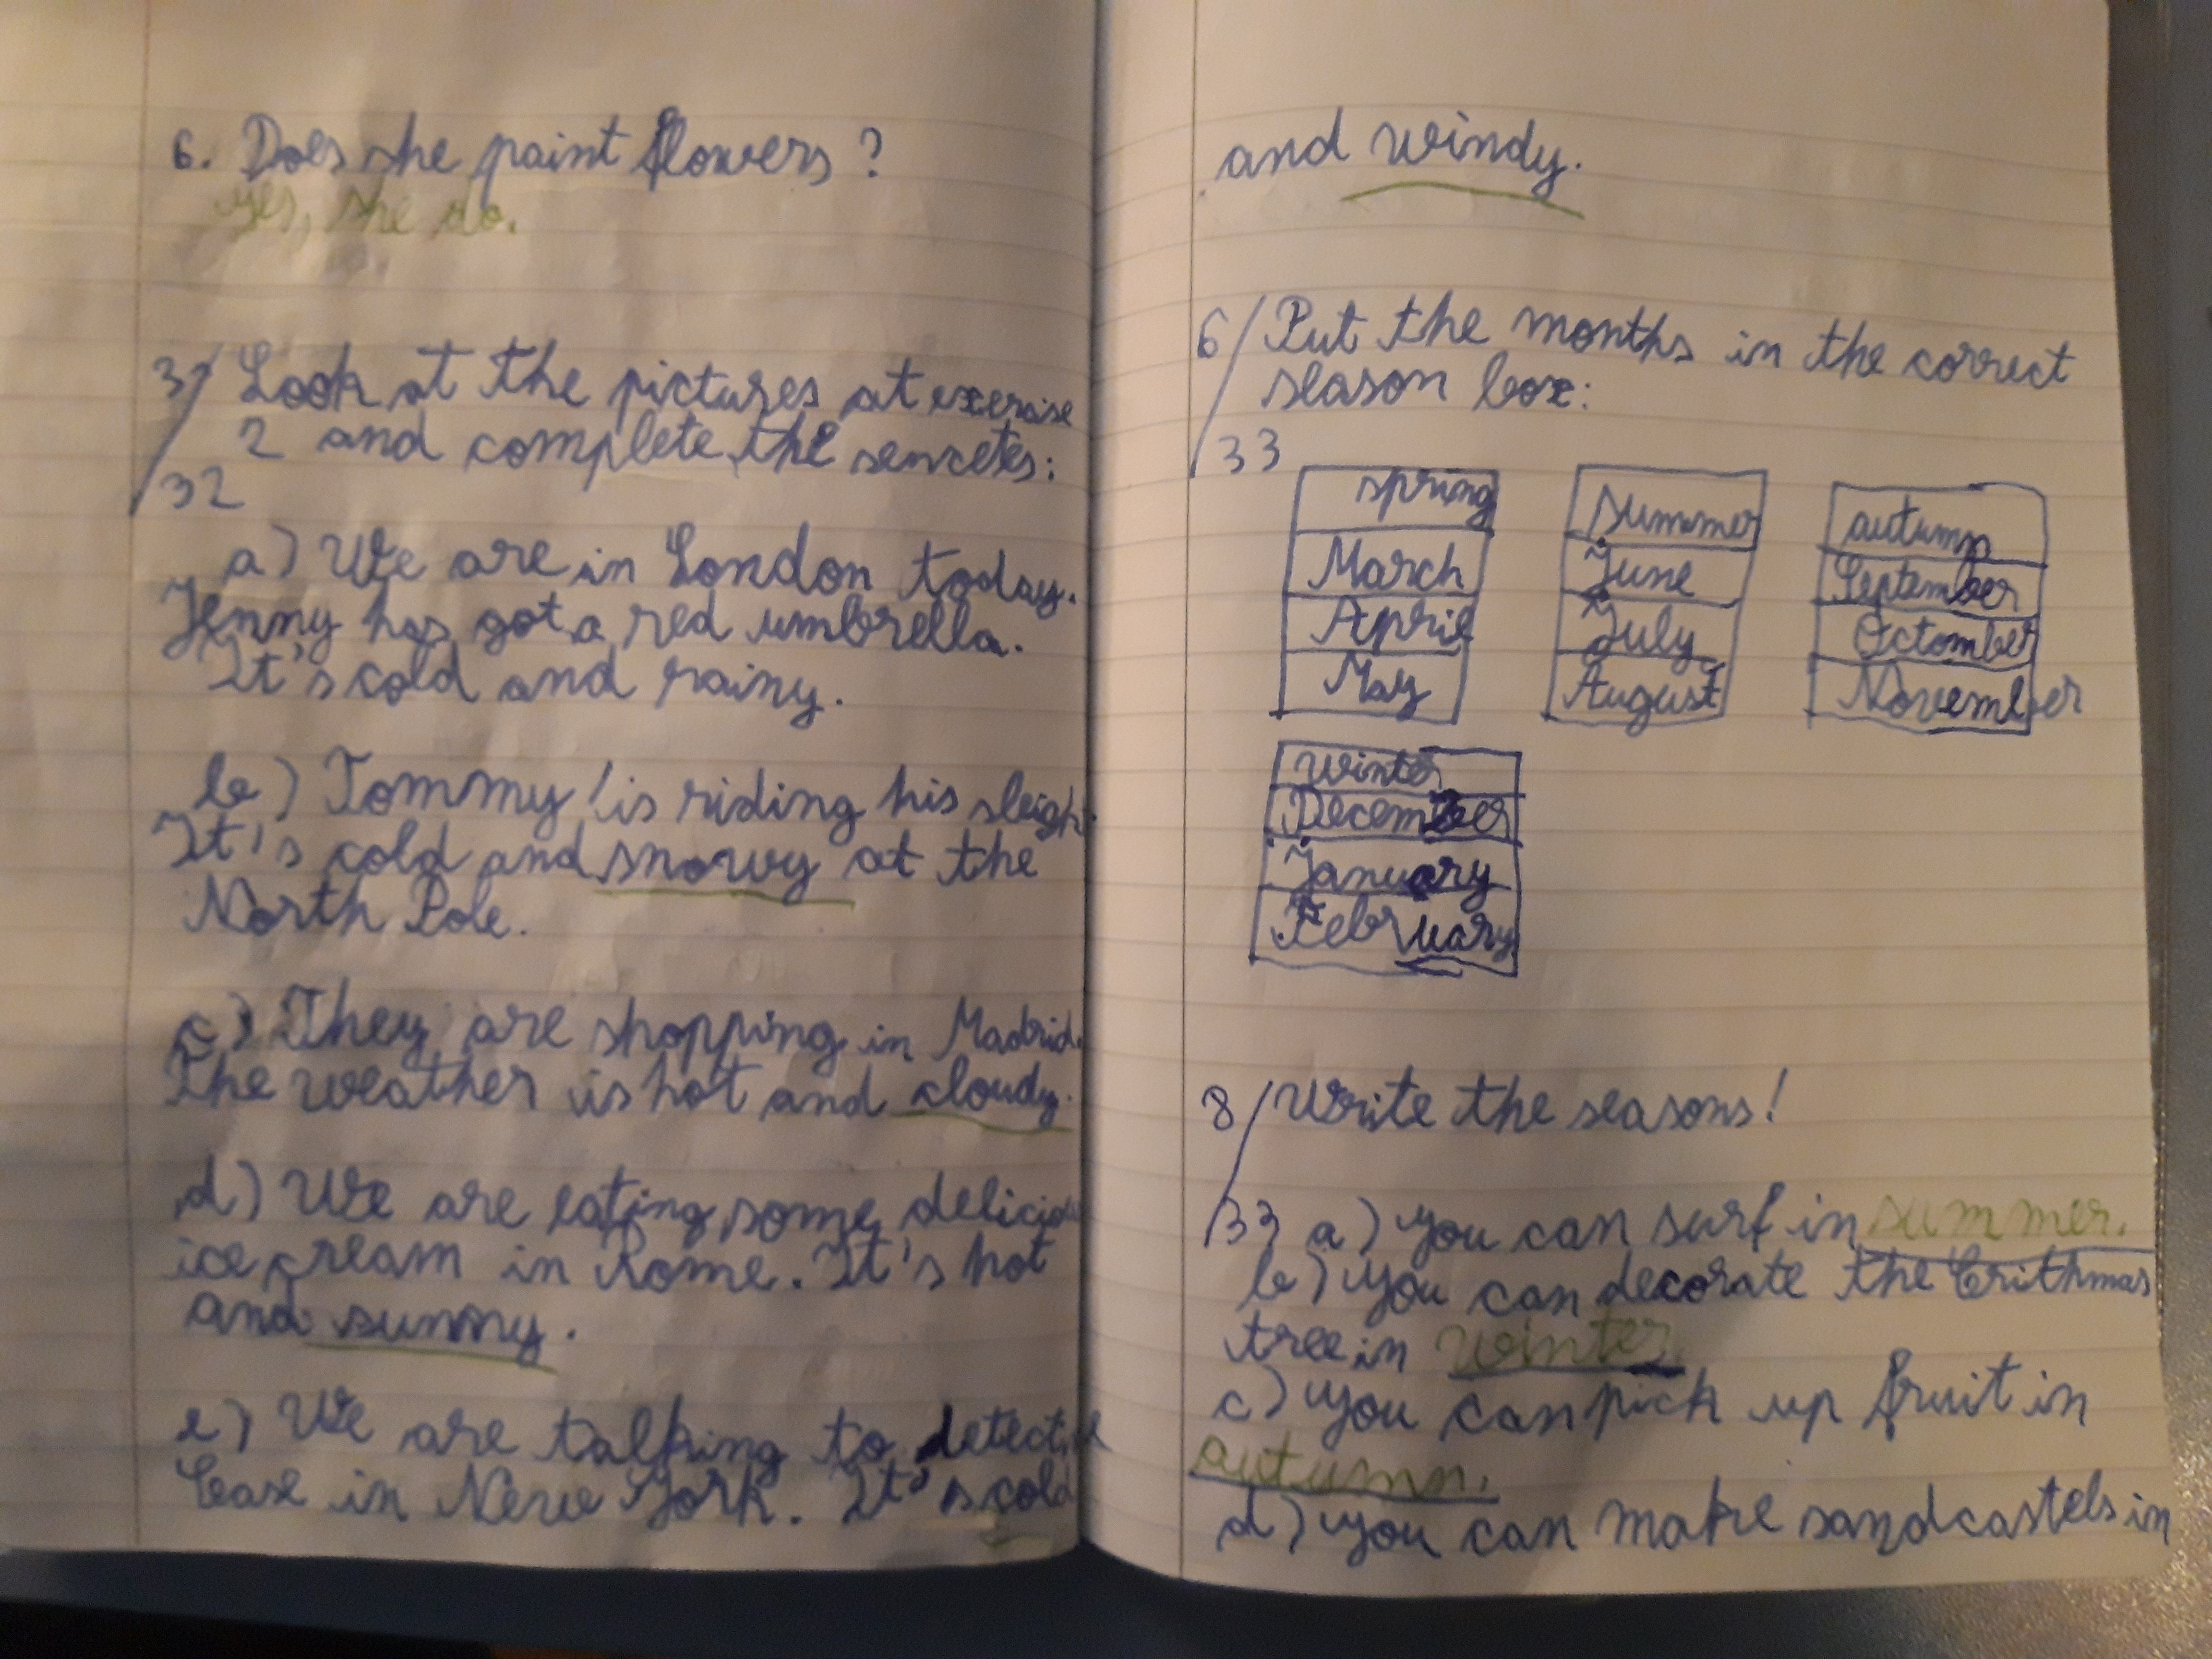 6. Does she paint flowers?
yes, she do.
3/ Look at the pictures at exercise
2 and complete the sencetes:
32
a) We are in London today.
Jenny has got a red umbrella.
It's cold and rainy.
b) Tommy is riding his sleigh.
It's cold and snowy at the
North Pole.
c) They are shopping in Madrid.
The weather is hot and cloudy.
d) We are eating some
ice cream in Rome. It's hot
and sunny.
e) We are talking to detective
Case in New York. It's cold
and windy.
6/ Put the months in the correct
season box:
33
spring
March
April
May
summer
June
July
August
autumn
September
Octomber
November
winter
December
January
February
8/ Write the seasons!
33 a) you can surf in summer.
b) you can decorate the Crithmas
tree in winter.
c) you can pick up fruit in
autumn.
d) you can make sandcastels in